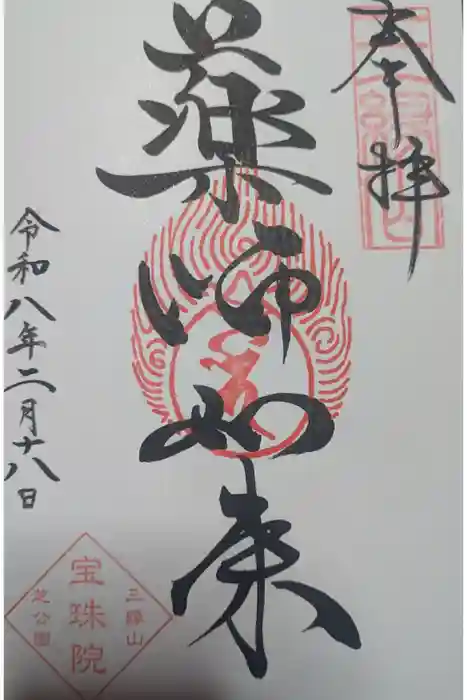 奉拝
薬師如来
令和八年二月十八日
三縁山
宝珠院
芝公園